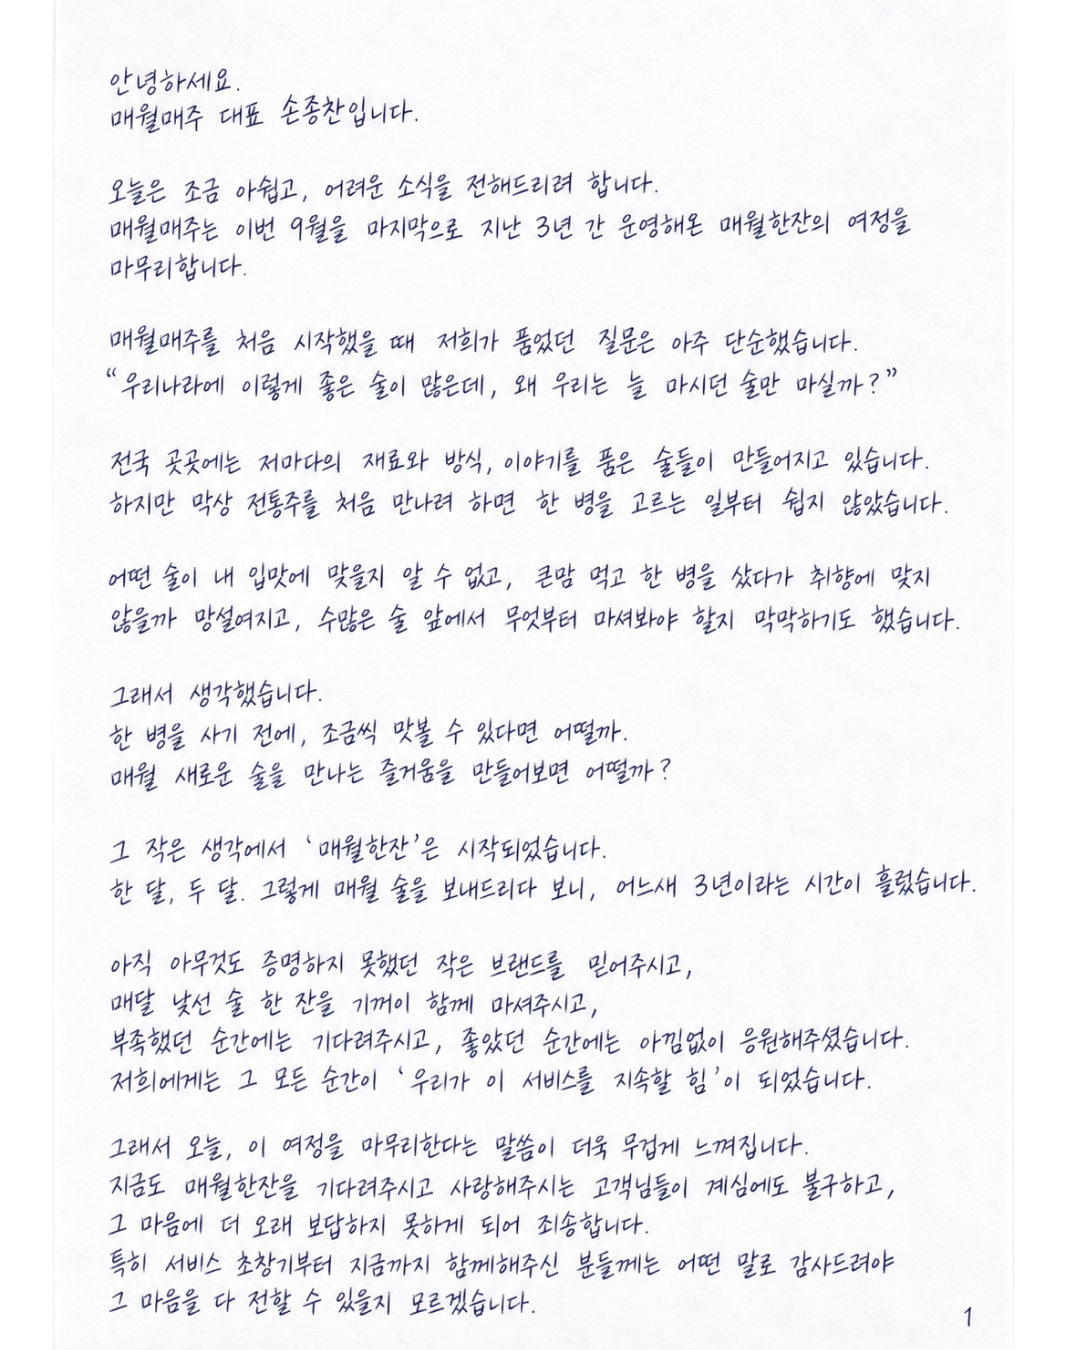 안녕하세요.
매월매주 대표 손종찬입니다.
오늘은 조금 아쉽고, 어려운 소식을 전해드리려 합니다.
매월매주는 이번 9월을 마지막으로 지난 3년 간 운영해온 매월한잔의 여정을
마무리합니다.
매월매주를 처음 시작했을 때 저희가 품었던 질문은 아주 단순했습니다.
“우리나라에 이렇게 좋은 술이 많은데, 왜 우리는 늘 마시던 술만 마실까?”
전국 곳곳에는 저마다의 재료와 방식, 이야기를 품은 술들이 만들어지고 있습니다.
하지만 막상 전통주를 처음 만나려 하면 한 병을 고르는 일부터 쉽지 않았습니다.
어떤 술이 내 입맛에 맞을지 알 수 없고, 큰맘 먹고 한 병을 샀다가 취향에 맞지
않을까 망설여지고, 수많은 술 앞에서 무엇부터 마셔봐야 할지 막막하기도 했습니다.
그래서 생각했습니다.
한 병을 사기 전에, 조금씩 맛볼 수 있다면 어떨까.
매월 새로운 술을 만나는 즐거움을 만들어보면 어떨까?
그 작은 생각에서 ‘매월한잔’은 시작되었습니다.
한 달, 두 달. 그렇게 매월 술을 보내드리다 보니, 어느새 3년이라는 시간이 흘렀습니다.
아직 아무것도 증명하지 못했던 작은 브랜드를 믿어주시고,
매달 낯선 술 한 잔을 기꺼이 함께 마셔주시고,
부족했던 순간에는 기다려주시고, 좋았던 순간에는 아낌없이 응원해주셨습니다.
저희에게는 그 모든 순간이 ‘우리가 이 서비스를 지속할 힘’이 되었습니다.
그래서 오늘, 이 여정을 마무리한다는 말씀이 더욱 무겁게 느껴집니다.
지금도 매월한잔을 기다려주시고 사랑해주시는 고객님들이 계심에도 불구하고,
그 마음에 더 오래 보답하지 못하게 되어 죄송합니다.
특히 서비스 초창기부터 지금까지 함께해주신 분들께는 어떤 말로 감사드려야
그 마음을 다 전할 수 있을지 모르겠습니다.
1